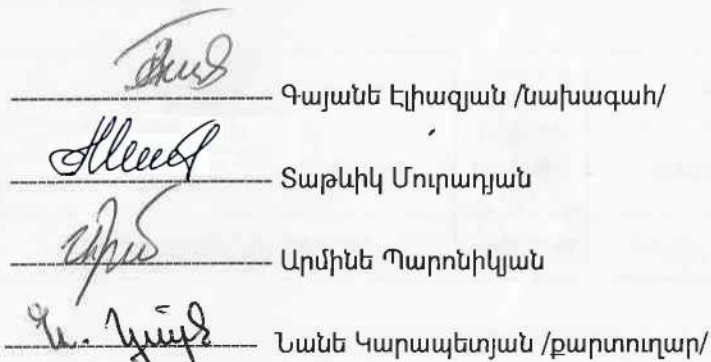 Գայանե Էլիազյան /նախագահ/
Տաթևիկ Մուրադյան
Արմինե Պարոնիկյան
Նանե Կարապետյան /քարտուղար/